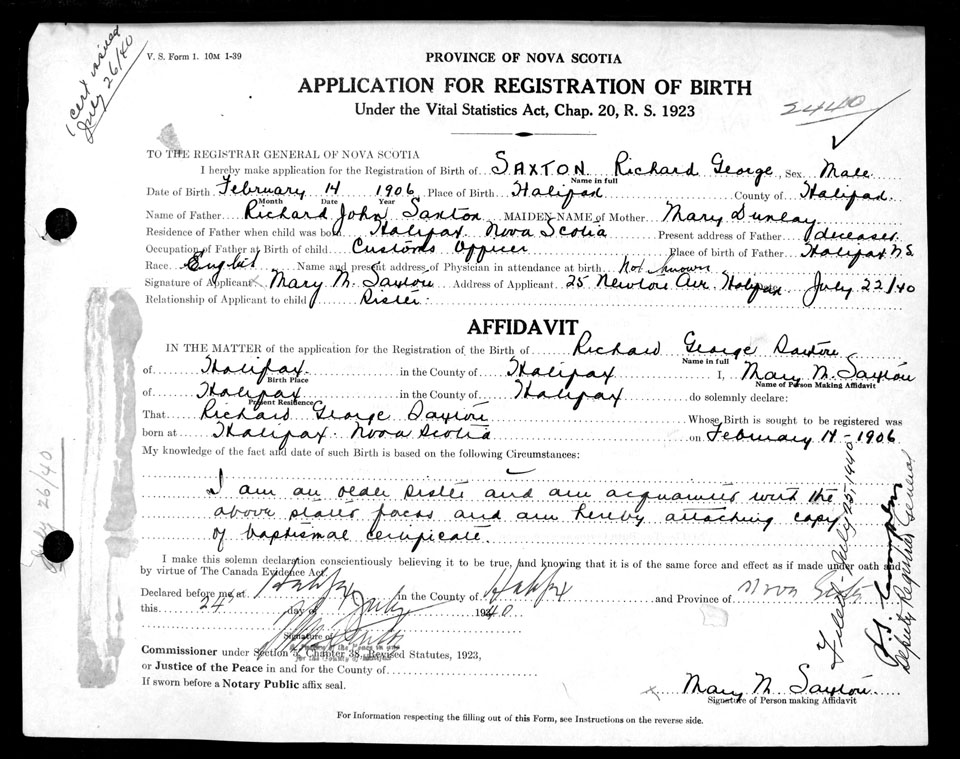 1 cert issued
July 26/40
V. S. Form 1. 10M 1-39
PROVINCE OF NOVA SCOTIA
APPLICATION FOR REGISTRATION OF BIRTH
Under the Vital Statistics Act, Chap. 20, R. S. 1923
2440
TO THE REGISTRAR GENERAL OF NOVA SCOTIA
I hereby make application for the Registration of Birth of SAXTON Richard George, Sex Male
Name in full
Date of Birth February 14 1906 Place of Birth Halifax County of Halifax
Month Date Year
Name of Father Richard John Saxton MAIDEN NAME of Mother Mary Dunlay
Residence of Father when child was born Halifax Nova Scotia Present address of Father deceased
Occupation of Father at Birth of child Customs Officer Place of birth of Father Halifax N.S.
Race English Name and present address of Physician in attendance at birth Not known
Signature of Applicant Mary M. Saxton Address of Applicant 25 Newton Ave. Halifax July 22/40
Relationship of Applicant to child Sister
AFFIDAVIT
IN THE MATTER of the application for the Registration of the Birth of Richard George Saxton
Name in full
of Halifax in the County of Halifax I, Mary M. Saxton
Birth Place Name of Person Making Affidavit
of Halifax in the County of Halifax do solemnly declare:
Present Residence
That Richard George Saxton Whose Birth is sought to be registered was
born at Halifax Nova Scotia on February 14 - 1906
My knowledge of the fact and date of such Birth is based on the following Circumstances:
I am an older sister and am acquainted with the
above stated facts and am hereby attaching copy
of baptismal certificate.
I make this solemn declaration conscientiously believing it to be true, and knowing that it is of the same force and effect as if made under oath and
by virtue of The Canada Evidence Act.
Declared before me at Halifax in the County of Halifax and Province of Nova Scotia
this 24th day of July 1940
Signature of
Commissioner under Section 3, Chapter 38, Revised Statutes, 1923,
A Justice of the Peace in and
for the County of Halifax
or Justice of the Peace in and for the County of
If sworn before a Notary Public affix seal.
x Mary M. Saxton
Signature of Person making Affidavit
For Information respecting the filling out of this Form, see Instructions on the reverse side.
July 26/40
Filed - July 25, 1940
Deputy Registrar General